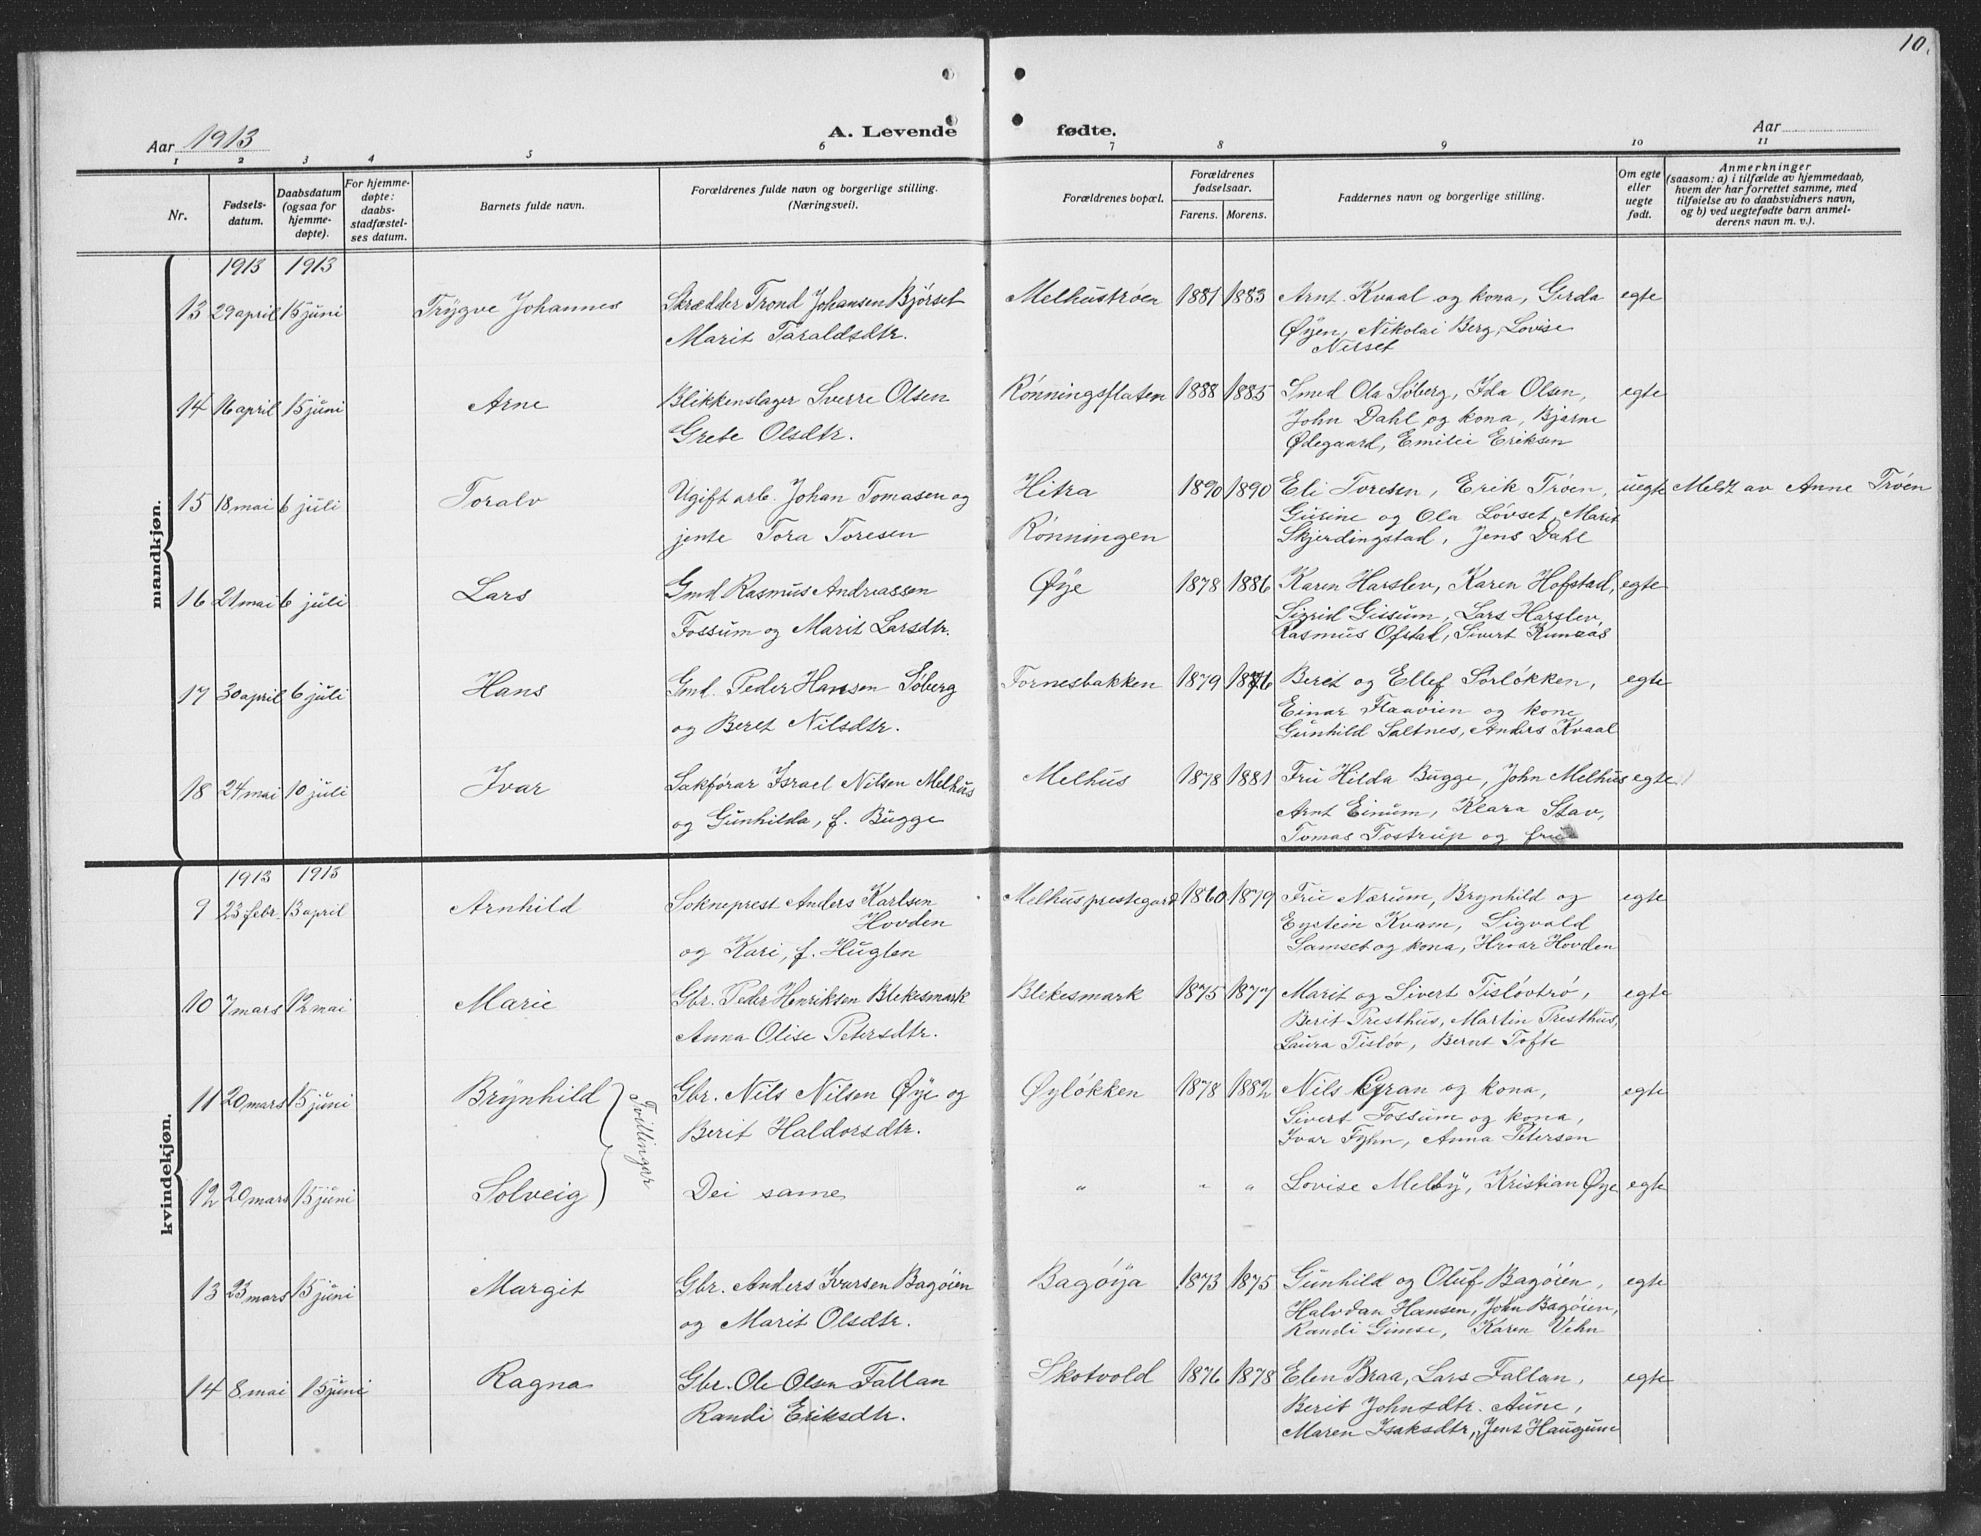 10.
Aar 1913
A. Levende fødte.
Aar
1 2 3 4 5 6 7 8 9 10 11
Nr.
Fødsels-
datum.
Daabsdatum
(ogsaa for
hjemme-
døpte).
For hjemme-
døpte:
daabs-
stadfæstel-
ses datum.
Barnets fulde navn.
Forældrenes fulde navn og borgerlige stilling.
(Næringsvei).
Forældrenes bopæl.
Forældrenes
fødselsaar.
Farens. Morens.
Faddernes navn og borgerlige stilling.
Om egte
eller
uegte
født.
Anmerkninger
(saasom: a) i tilfælde av hjemmedaab,
hvem der har forrettet samme, med
tilføielse av to daabsvidners navn,
og b) ved uegtefødte barn anmel-
derens navn m. v.).
mandkjøn.
1913 1913
13 29 april 15 juni Trygve Johannes Skrædder Trond Johansen Bjørset Melhustrøen 1881 1883 Arnt Kvaal og kona, Gerda egte
Marit Taraldsdtr. Øyen, Nikolai Berg, Lovise
Nelset
14 16 april 15 juni Arne Blikkenslager Sverre Olsen Rønningsflaten 1888 1885 Smed Ola Søberg, Ida Olsen, egte
Grete Olsdtr. John Dahl og kona, Bjarne
Ødegaard, Emilie Eriksen
15 18 mai 6 juli Toralv Ugift arb. Johan Tomasen og Hitra 1890 1890 Eli Toresen, Erik Trøen, uegte Meldt av Anne Trøen
jente Tora Toresen Rønningen Gurine og Ola Løvset, Marit
Skjerdingstad, Jens Dahl
16 21 mai 6 juli Lars Gmd. Rasmus Andreassen Øye 1878 1886 Karen Harslev, Karen Hofstad, egte
Fossum og Marit Larsdtr. Sigrid Gissum, Lars Harslev,
Rasmus Ofstad, Sivert
17 30 april 6 juli Hans Gmd. Peder Hansen Søberg Fornesbakken 1879 1876 Beret og Ellef Sørløkken, egte
og Beret Nilsdtr. Einar Flaaøien og kone
Gunhild Saltnes, Anders Kvaal
18 24 mai 10 juli Ivar Sakførar Israel Nilsen Melhus Melhus 1878 1881 Fru Hilda Bugge, John Melhus egte
og Gunhilda, f. Bugge Arnt Einum, Klara Stav,
Tomas Tostrup og frue
kvindekjøn.
1913 1913
9 23 febr. 13 april Arnhild Sokneprest Anders Karlsen Melhus prestegard 1860 1879 Fru Nærum, Brynhild og egte
Hovden Eystein Kvam, Sigvald
og Kari, f. Huglen Samset og kona, Hroar Hovden
10 7 mars 12 mai Marie Gbr. Peder Henriksen Blekesmark Blekesmark 1875 1877 Marit og Sivert Tisløvtrø, egte
Anna Olise Petersdtr. Berit Presthus, Martin Presthus,
Laura Tisløv, Bernt Tofte
11 20 mars 15 juni Brynhild Gbr. Nils Nilsen Øye og Øyløkken 1878 1882 Nils Gran og kona, egte
Tvillingar
Berit Haldorsdtr. Sivert Fossum og kona,
Ivar Fyhn, Anna Petersen
12 20 mars 15 juni Solveig Dei same " " " Lovise Melby, Kristian Øye egte
13 23 mars 15 juni Margit Gbr. Anders Ivarsen Bagøien Bagøya 1873 1875 Gunhild og Oluf Bagøien, egte
og Marit Olsdtr. Halvdan Hansen, John Bagøien,
Randi Gimse, Karen Vehn
14 8 mai 15 juni Ragna Gbr. Ole Olsen Fallan Skotvold 1876 1878 Elen Braa, Lars Fallan, egte
Randi Eriksdtr. Berit Johnsdtr. Aune,
Maren Isaksdtr., Jens Haugum